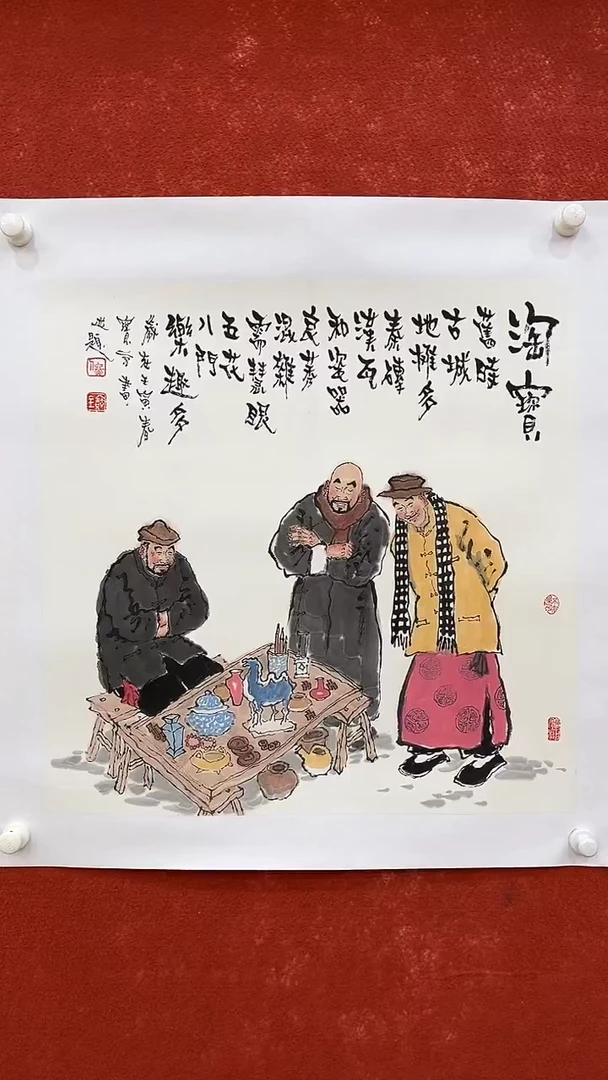 淘寶
舊時
古城
地摊多
秦磚
漢瓦
和瓷器
良莠
混雜
需慧眼
五花
八門
樂趣多
歲在壬寅春